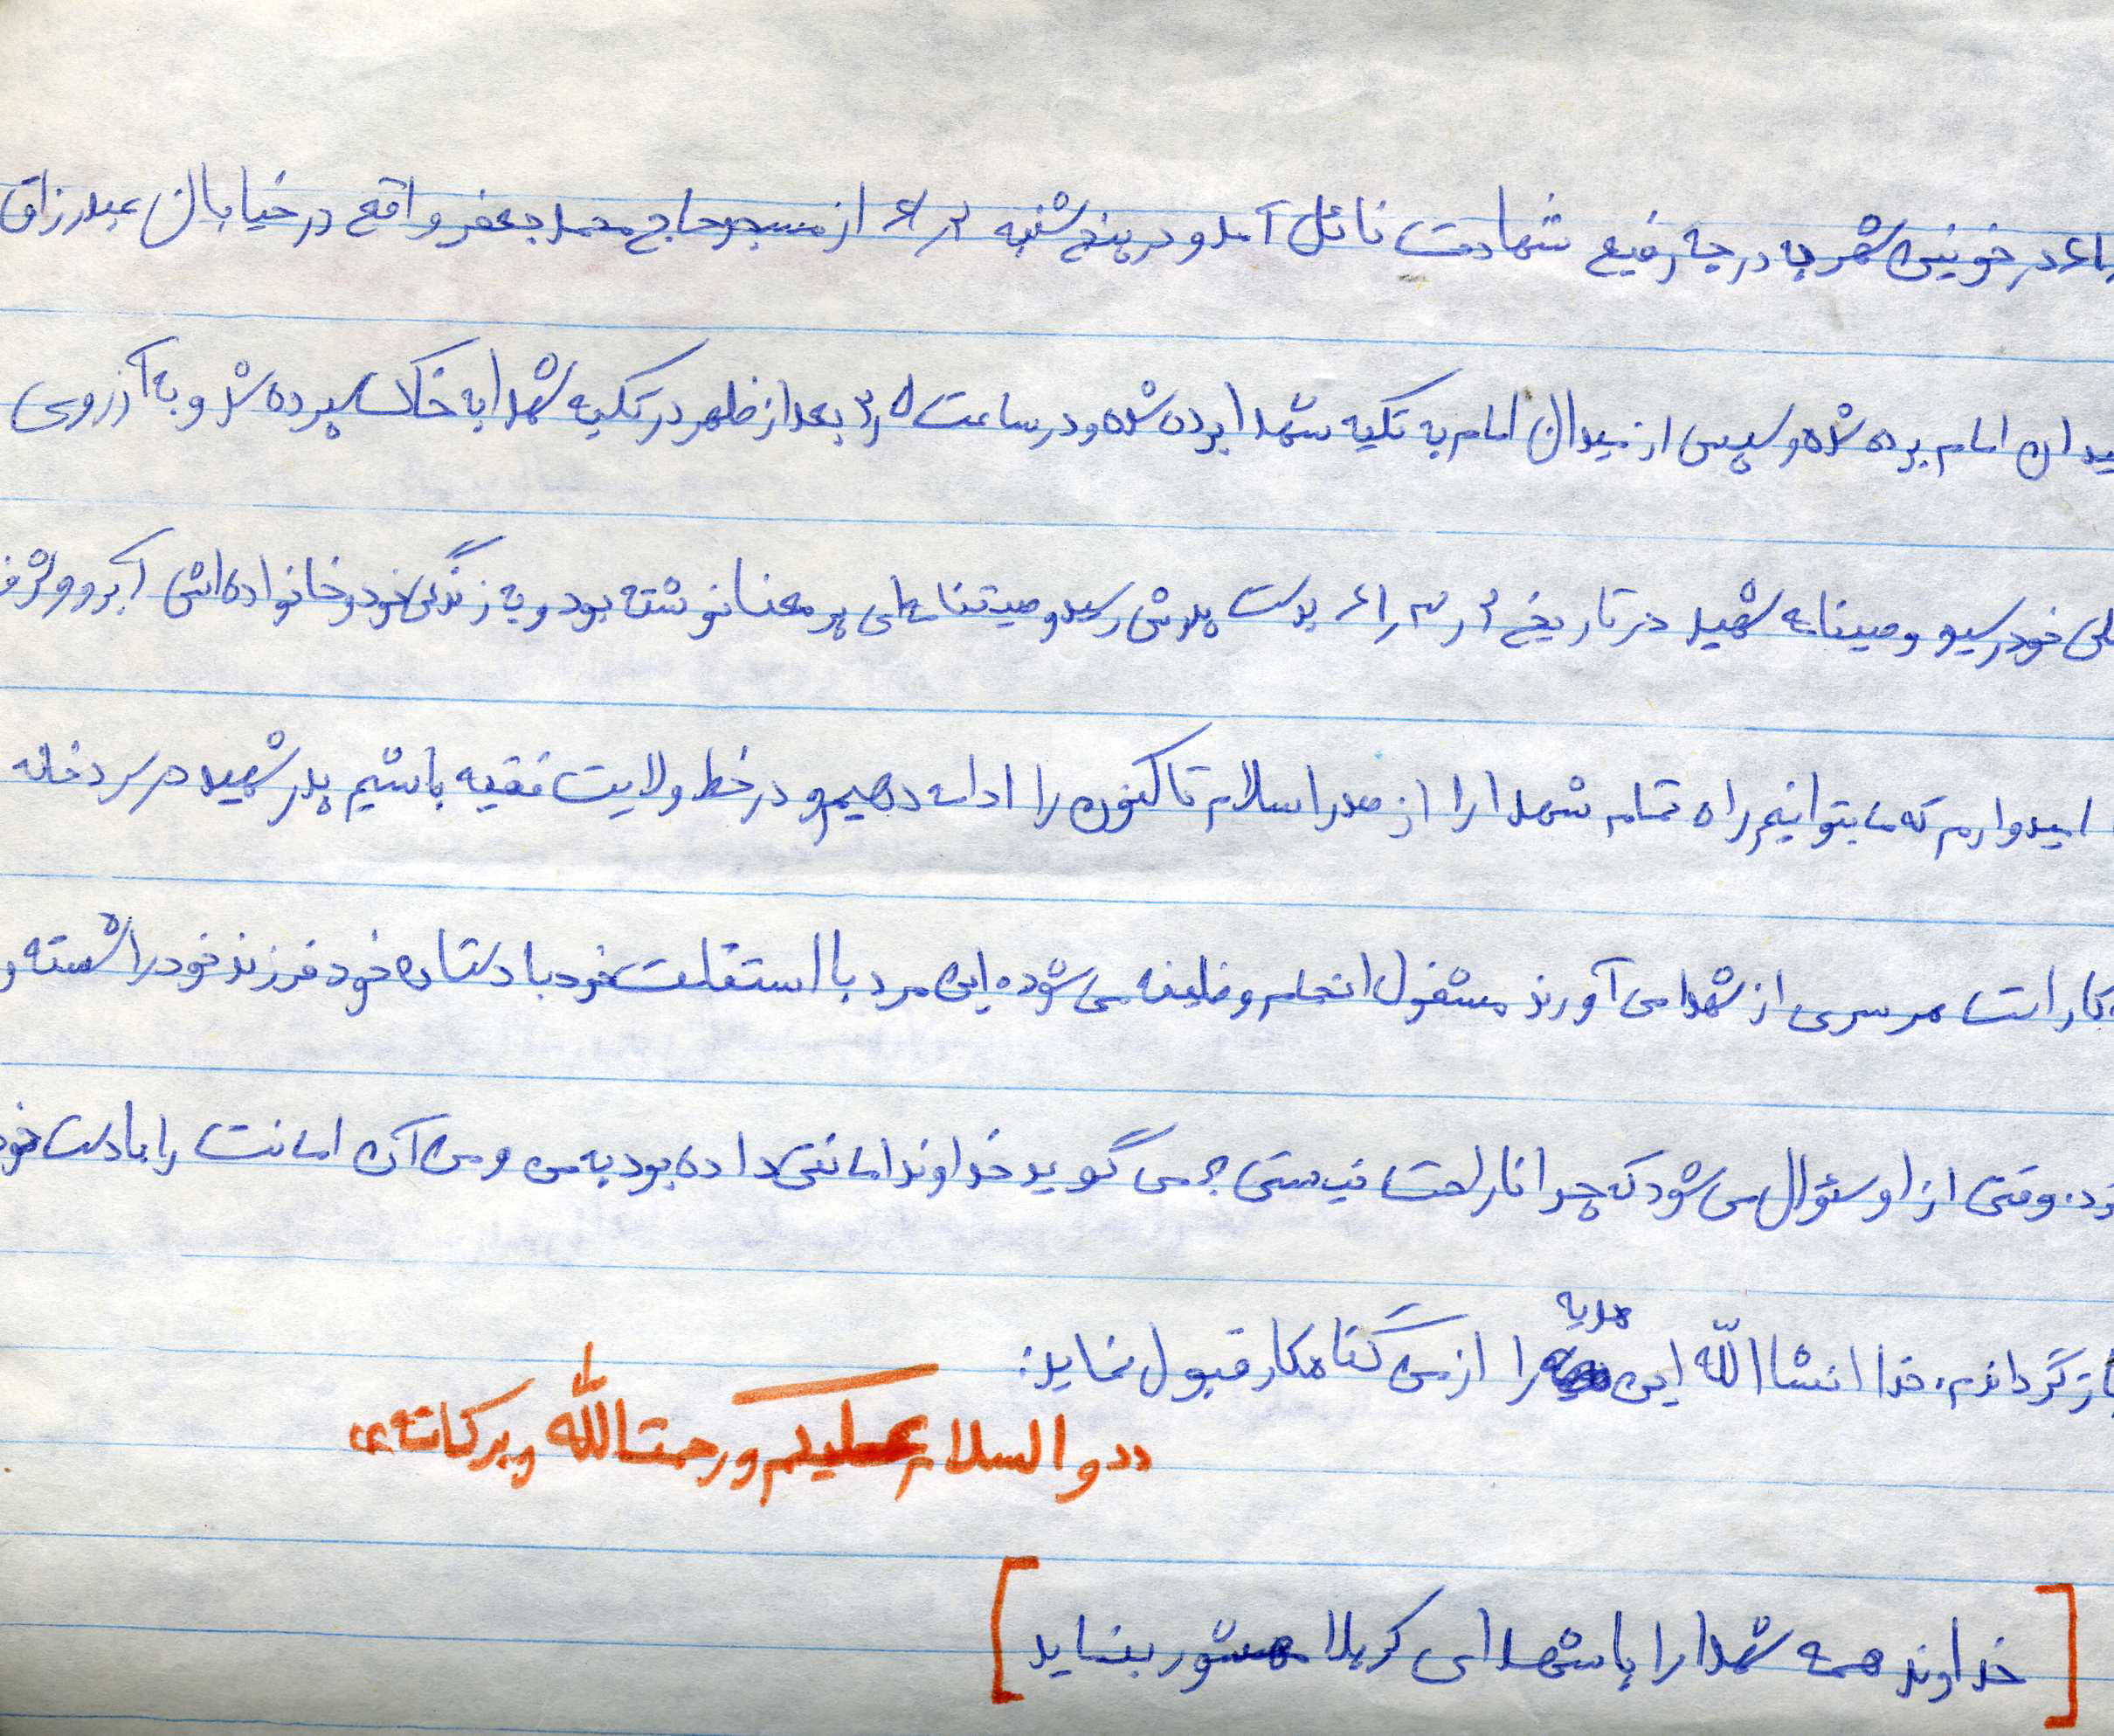 در خونین شهر به درجه رفیع شهادت نائل آمد و در پنج شنبه از مسجد حاج محمد جعفر واقع در خیابان عبدرزاق
امام برده شده و سپس از میدان امام به تکیه شهدا برده شده و در ساعت ۳٫۵ بعداز ظهر در تکیه شهدا به خاک سپرده شد و به آرزوی
خود رسید و وصیتنامه شهید در تاریخ بدست پدرش رسید وصیتنامه‌ای پر معنا نوشته بود و به زندگی خود و خانواده‌اش آبرو و شرف
امیدوارم که ما بتوانیم راه تمام شهدا را از صدر اسلام تا کنون را ادامه دهیم و در خط ولایت فقیه باشیم پدر شهید در سردخانه
هر سری از شهدا می آورند مشغول انجام وظیفه می شود این مرد با استقامت خود با دستان خود فرزند خود را شسته و
وقتی از او سئوال می شود که چرا ناراحت نیستی؟ می گوید خداوند امانتی داده بود به من و من آن امانت را با دست خود
باز گرداندم. خدا انشاالله این هدیه را از من گناهکار قبول نماید:
«والسلام علیکم و رحمت الله و برکاته»
[خداوند همه شهدا را با شهدای کربلا محشور بنماید]